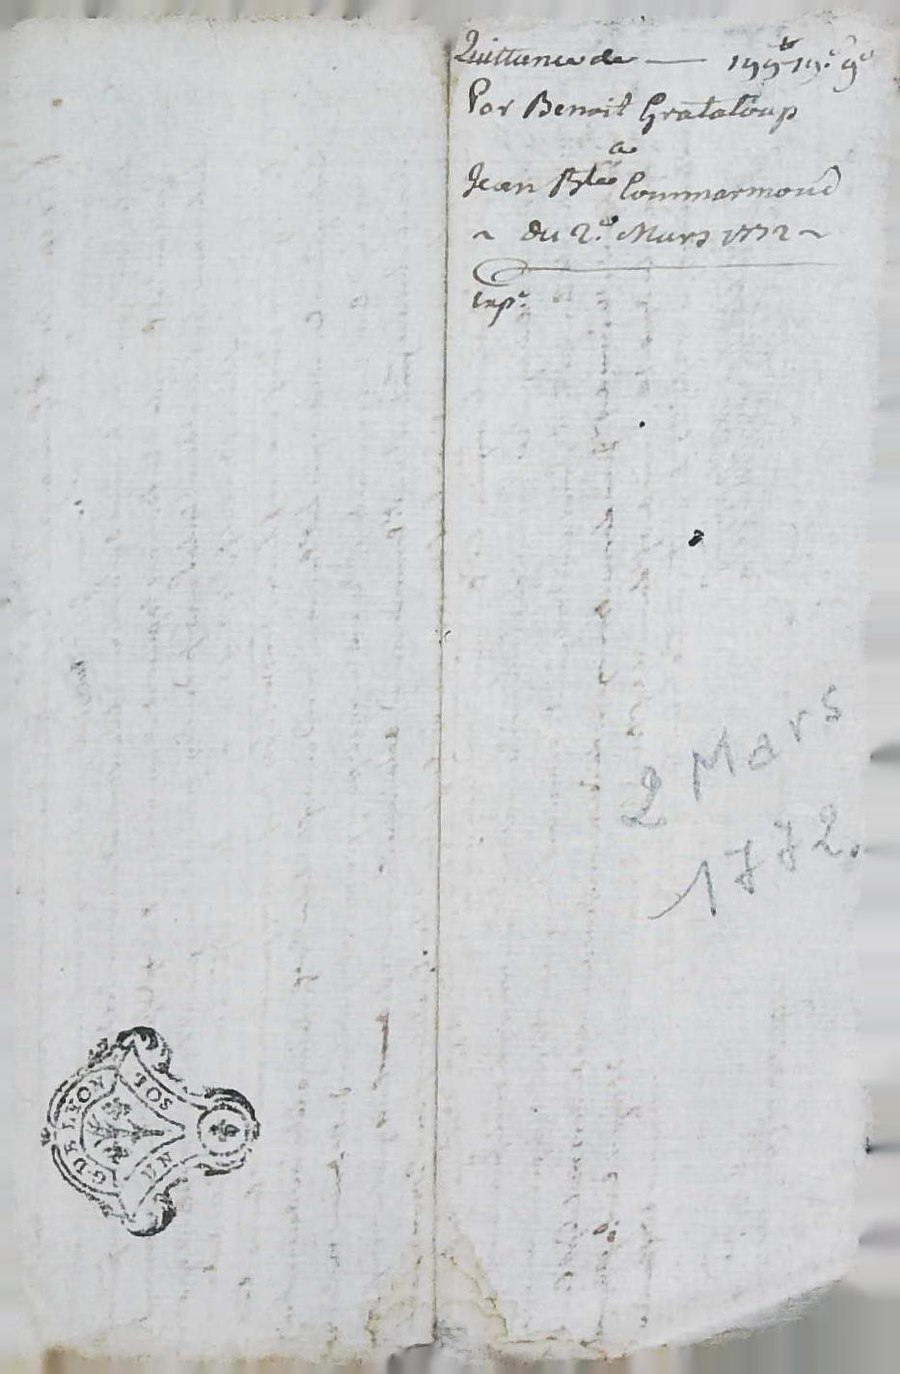 Quittance de — 199ᵗᵗ 19ˢ 9ᵈ
Par Benoit Grataloup
a
Jean Bte Commarmond
~ du 2.e Mars 1772 ~
Exp.e
2 Mars
1772.
G DE LYON
UN SOL